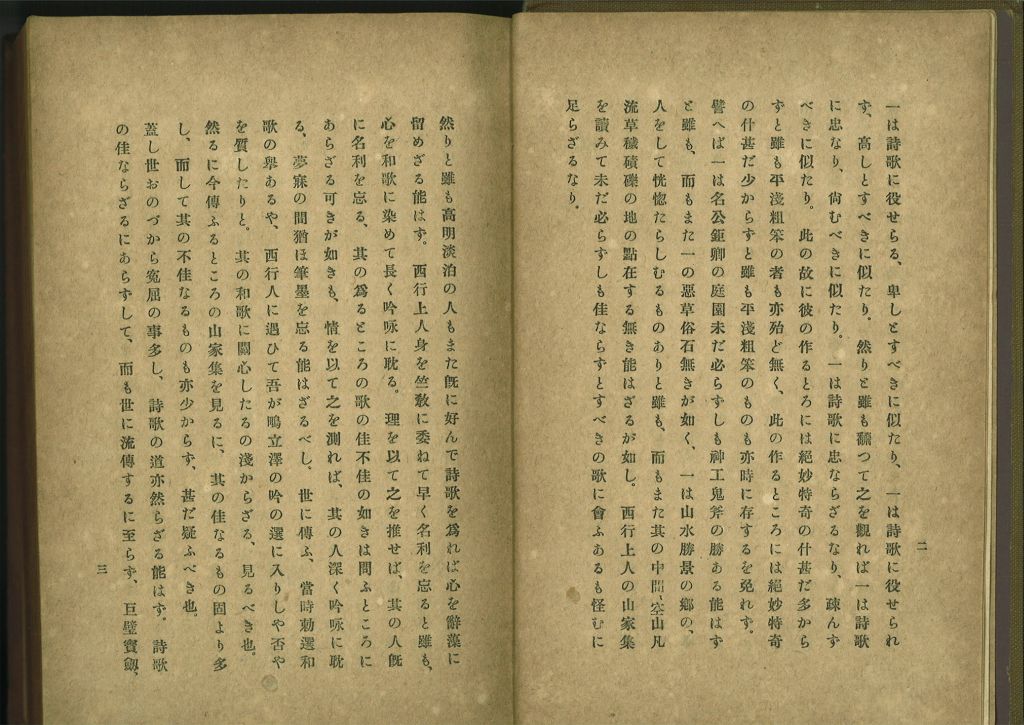 一は詩歌に役せらる、卑しとすべきに似たり、一は詩歌に役せられ
ず、高しとすべきに似たり。然りと雖も飜つて之を觀れば一は詩歌
に忠なり、尙むべきに似たり。一は詩歌に忠ならざるなり、疎んず
べきに似たり。此の故に彼の作るとろには絕妙特奇の什甚だ多から
ずと雖も平淺粗笨の者も亦殆ど無く、此の作るところには絕妙特奇
の什甚だ少からずと雖も平淺粗笨のものも亦時に存するを免れず。
譬へば一は名公鉅卿の庭園未だ必らずしも神工鬼斧の勝ある能はず
と雖も、而もまた一の惡草俗石無きが如く、一は山水勝景の鄕の、
人をして恍惚たらしむるものありと雖も、而もまた其の中間、空山凡
流草穢磧礫の地の點在する無き能はざるが如し。西行上人の山家集
を讀みて未だ必らずしも佳ならずとすべきの歌に會ふあるも怪むに
足らざるなり。
二
然りと雖も高明淡泊の人もまた旣に好んで詩歌を爲れば心を辭藻に
留めざる能はず。西行上人身を竺敎に委ねて早く名利を忘ると雖も、
心を和歌に染めて長く吟咏に耽る。理を以て之を推せば、其の人旣
に名利を忘る、其の爲るところの歌の佳不佳の如きは問ふところに
あらざる可きが如きも、情を以て之を測れば、其の人深く吟咏に耽
る、夢寐の間猶ほ筆墨を忘る能はざるべし。世に傳ふ、當時勅選和
歌の擧あるや、西行人に遇ひて吾が鴫立澤の吟の選に入りしや否や
を質したりと。其の和歌に關心したるの淺からざる、見るべき也。
然るに今傳ふるところの山家集を見るに、其の佳なるもの固より多
し、而して其の不佳なるものも亦少からず、甚だ疑ふべき也。
蓋し世おのづから寃屈の事多し、詩歌の道亦然らざる能はず。詩歌
の佳ならざるにあらずして、而も世に流傳するに至らず、巨璧寶劔、
三